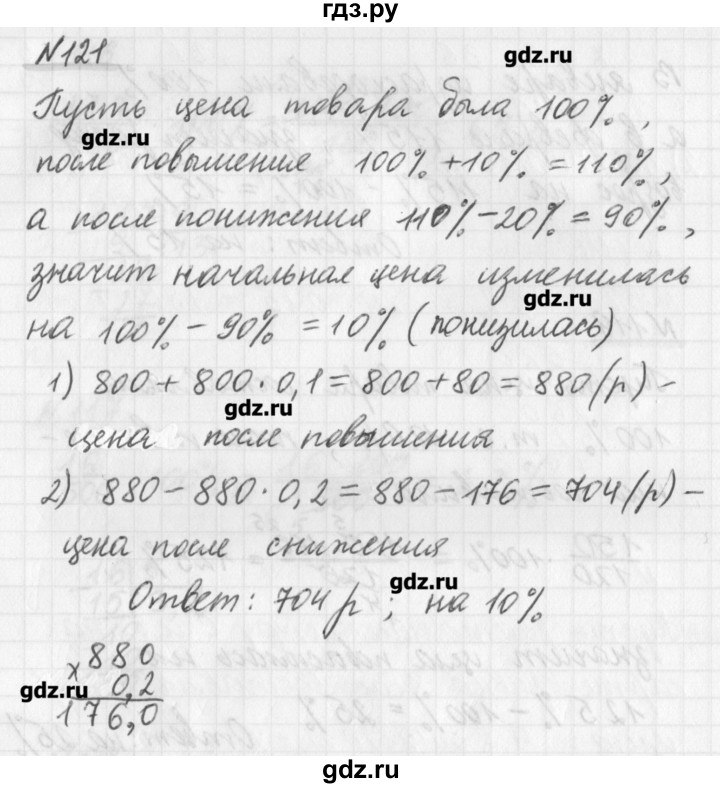 гдз.ру
N121
gdz.ru
Пусть цена товара была 100%,
gdz.ru
после повышения 100% + 10% = 110%,
а после понижения 110% - 20% = 90%,
значит начальная цена изменилась
gdz.ru
на 100% - 90% = 10% (понизилась)
1) 800 + 800 · 0,1 = 800 + 80 = 880 (р) -
gdz.ru
цена после повышения
2) 880 - 880 · 0,2 = 880 - 176 = 704 (р) -
цена после снижения
gdz.ru
Ответ: 704 р; на 10%
x 880
gdz.ru
0,2
176,0
gdz.ru